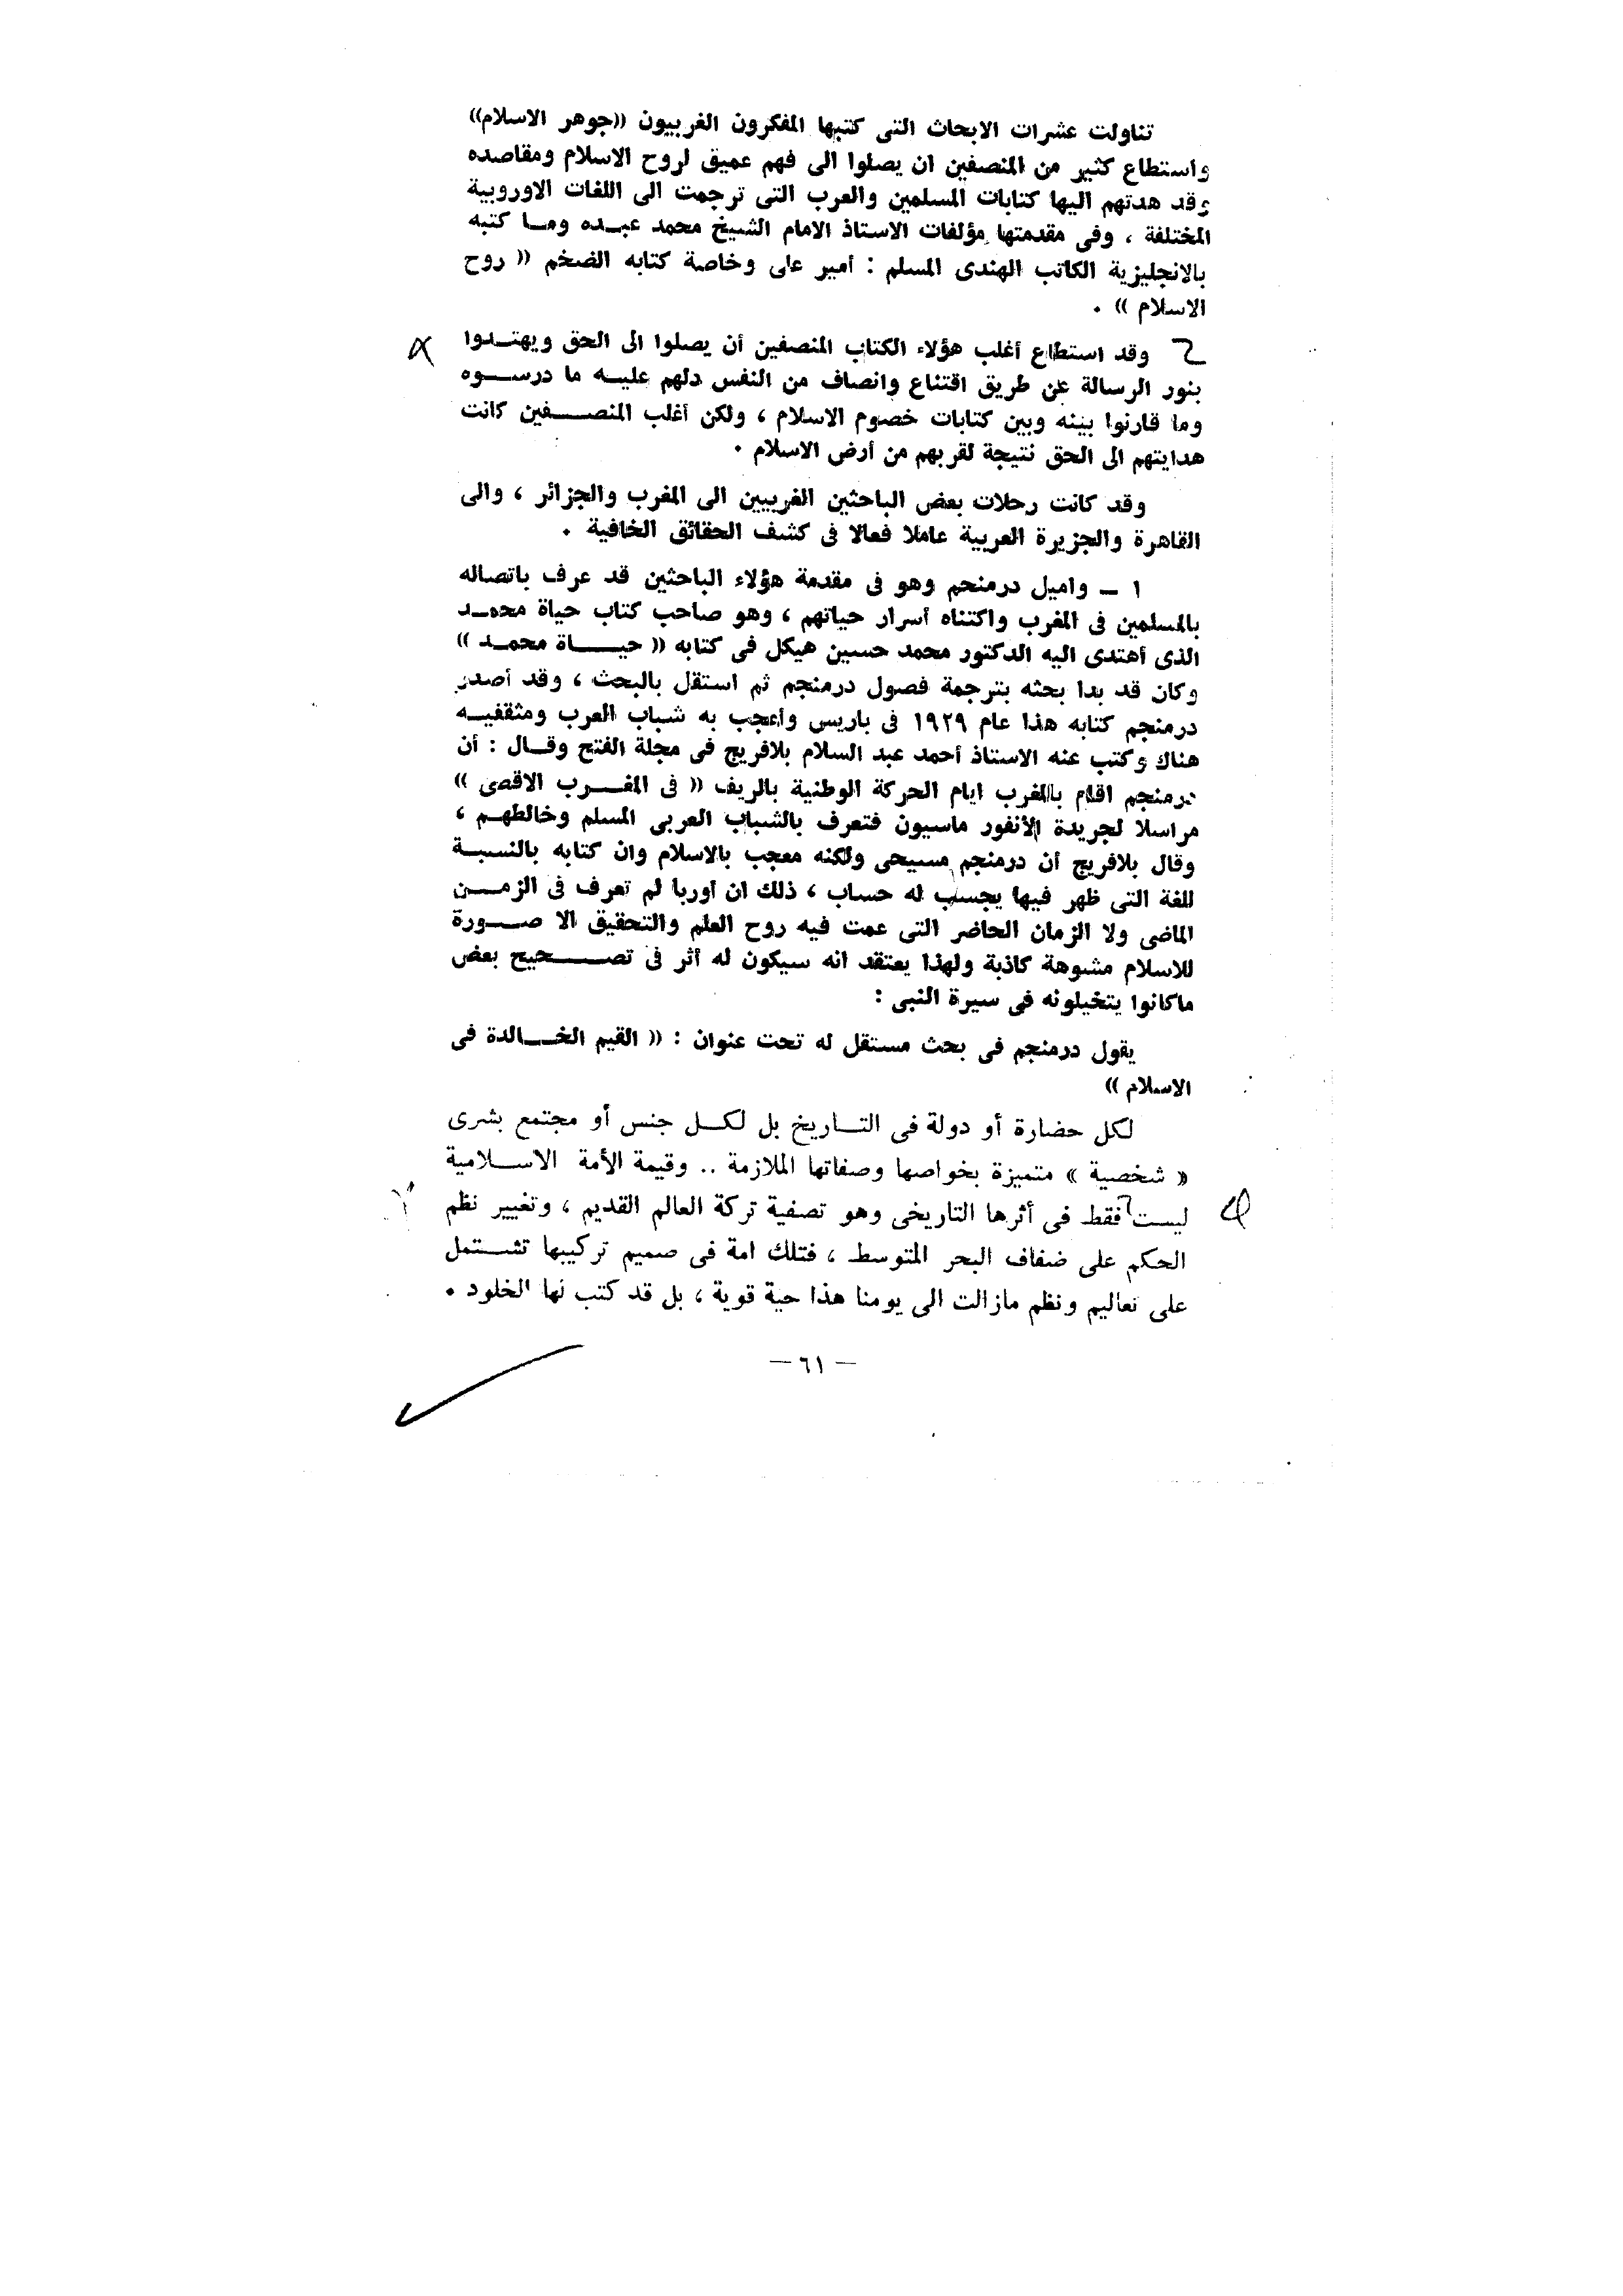 تناولت عشرات الابحاث التى كتبها المفكرون الغربيون ((جوهر الاسلام))
واستطاع كثير من المنصفين ان يصلوا الى فهم عميق لروح الاسلام ومقاصده
وقد هدتهم اليها كتابات المسلمين والعرب التى ترجمت الى اللغات الاوروبية
المختلفة ، وفى مقدمتها مؤلفات الاستاذ الامام الشيخ محمد عبده وما كتبه
بالانجليزية الكاتب الهندى المسلم : أمير على وخاصة كتابه الضخم (( روح
الاسلام )) .
وقد استطاع أغلب هؤلاء الكتاب المنصفين أن يصلوا الى الحق ويهتدوا
بنور الرسالة عن طريق اقتناع وانصاف من النفس دلهم عليه ما درسوه
وما قارنوا بينه وبين كتابات خصوم الاسلام ، ولكن أغلب المنصفين كانت
هدايتهم الى الحق نتيجة لقربهم من أرض الاسلام .
وقد كانت رحلات بعض الباحثين الغربيين الى المغرب والجزائر ، والى
القاهرة والجزيرة العربية عاملا فعالا فى كشف الحقائق الخافية .
١ ـ واميل درمنجم وهو فى مقدمة هؤلاء الباحثين قد عرف باتصاله
بالمسلمين فى المغرب واكتناه أسرار حياتهم ، وهو صاحب كتاب حياة محمد
الذى أهتدى اليه الدكتور محمد حسين هيكل فى كتابه (( حياة محمد ))
وكان قد بدا بحثه بترجمة فصول درمنجم ثم استقل بالبحث ، وقد أصدر
درمنجم كتابه هذا عام ١٩٢٩ فى باريس وأعجب به شباب العرب ومثقفيه
هناك وكتب عنه الاستاذ أحمد عبد السلام بلافريج فى مجلة الفتح وقال : أن
درمنجم اقام بالمغرب ايام الحركة الوطنية بالريف (( فى المغرب الاقصى ))
مراسلا لجريدة الأنفور ماسيون فتعرف بالشباب العربى المسلم وخالطهم ،
وقال بلافريج أن درمنجم مسيحى ولكنه معجب بالاسلام وان كتابه بالنسبة
للغة التى ظهر فيها يحسب له حساب ، ذلك ان أوربا لم تعرف فى الزمن
الماضى ولا الزمان الحاضر التى عمت فيه روح العلم والتحقيق الا صورة
للاسلام مشوهة كاذبة ولهذا يعتقد انه سيكون له أثر فى تصحيح بعض
ماكانوا يتخيلونه فى سيرة النبى :
يقول درمنجم فى بحث مستقل له تحت عنوان : (( القيم الخالدة فى
الاسلام ))
لكل حضارة أو دولة فى التاريخ بل لكل جنس أو مجتمع بشرى
« شخصية » متميزة بخواصها وصفاتها الملازمة .. وقيمة الأمة الاسلامية
ليست فقط فى أثرها التاريخى وهو تصفية تركة العالم القديم ، وتغيير نظم
الحكم على ضفاف البحر المتوسط ، فتلك امة فى صميم تركيبها تشتمل
على تعاليم ونظم مازالت الى يومنا هذا حية قوية ، بل قد كتب لها الخلود .
— ٦١ —